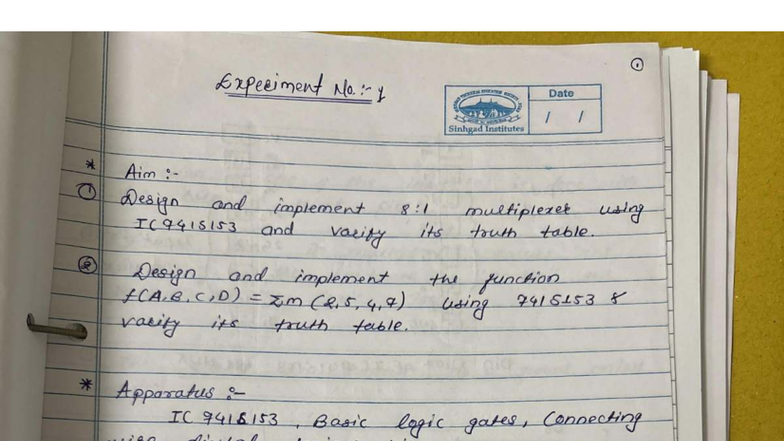 ①
Experiment No. :- 1
Date
/ /
Sinhgad Institutes
* Aim :-
① Design and implement 8:1 multiplexer using
IC 74LS153 and varify its truth table.
② Design and implement the function
f(A,B,C,D) = Σm (2,5,4,7) using 74LS153 &
varify its truth table.
* Apparatus :-
IC 74LS153, Basic logic gates, Connecting